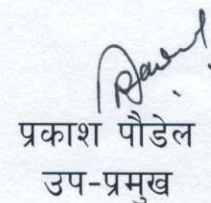 प्रकाश पौडेल
उप-प्रमुख